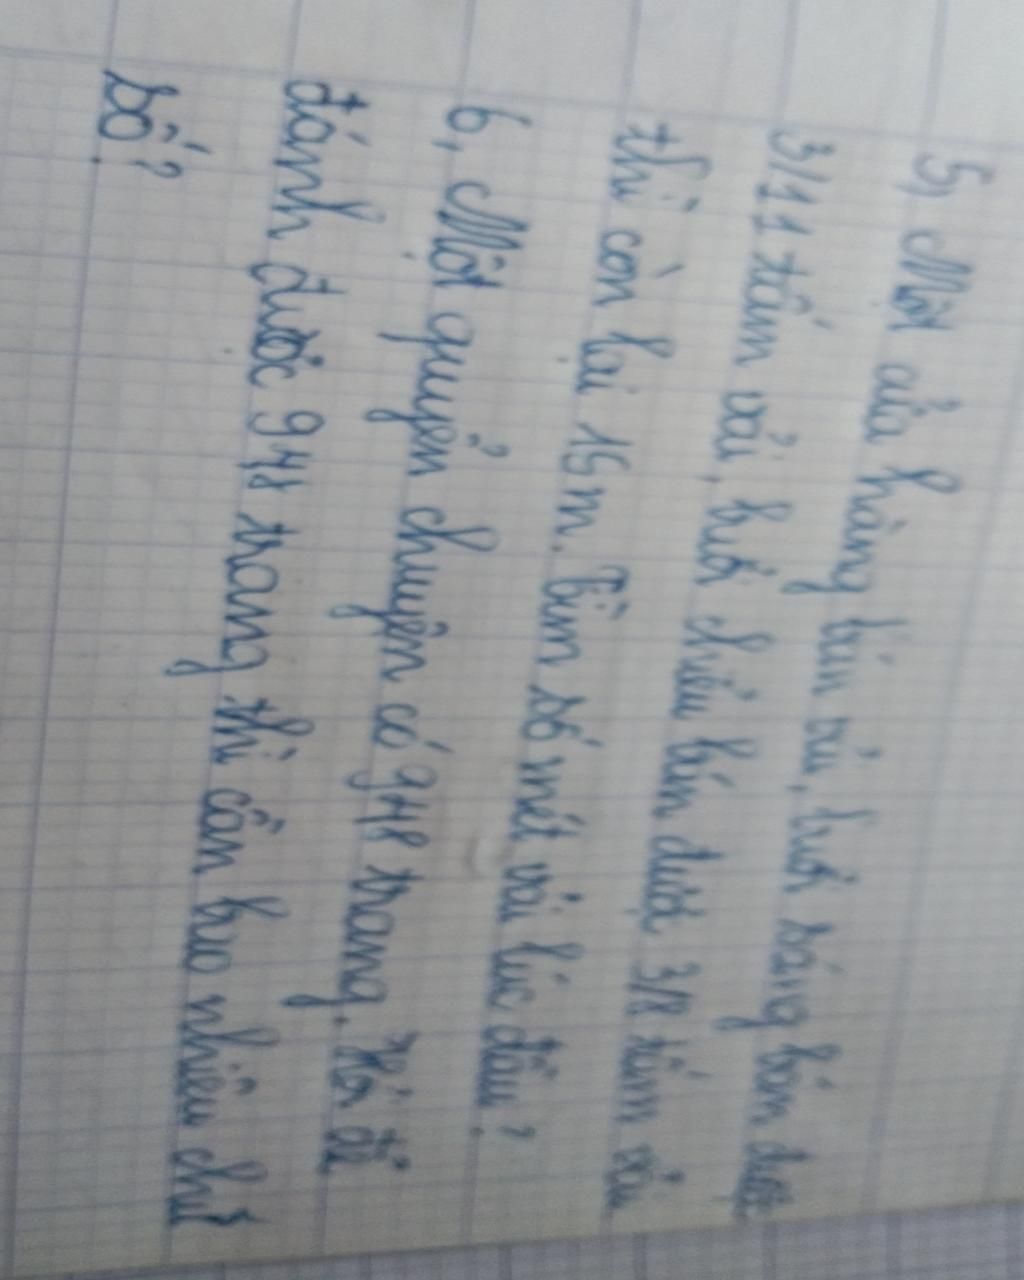 5, Một cửa hàng bán vải, buổi sáng bán được
3/11 tấm vải, buổi chiều bán được 3/8 tấm vải
thì còn lại 15m. Tìm số mét vải lúc đầu?
6, Một quyển chuyện có 948 trang. Hỏi để
đánh được 948 trang thì cần bao nhiêu chữ
số?